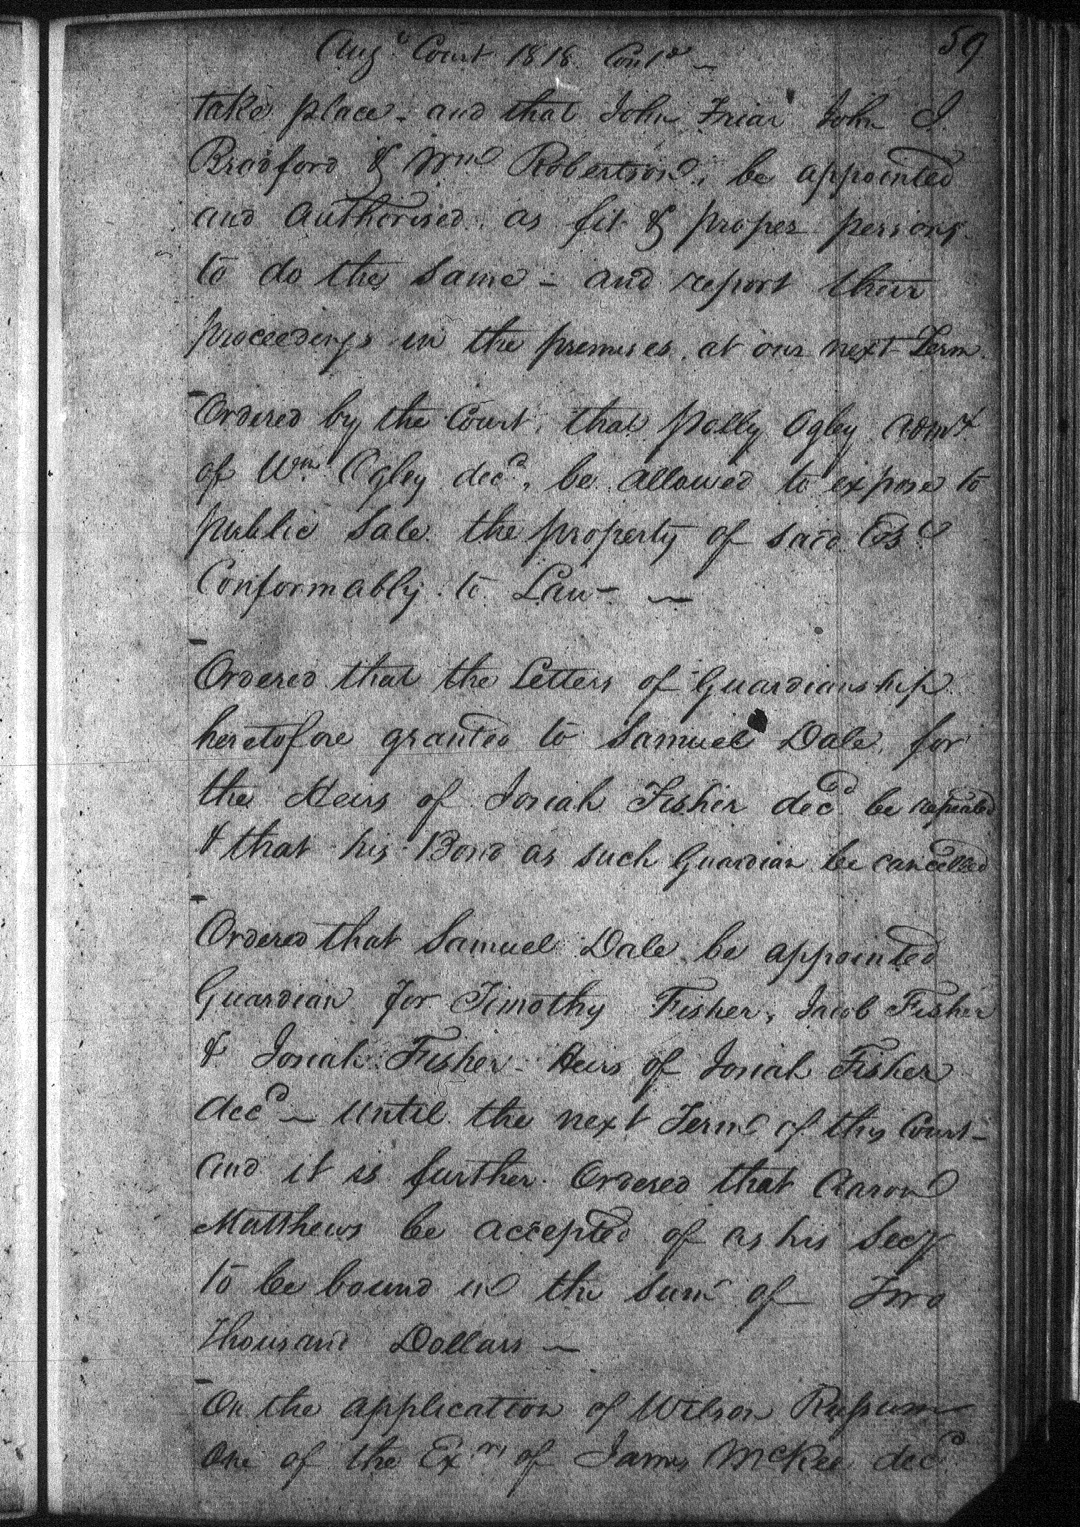 Augt Court 1818 Contd —
59
take place - and that John Friar John I.
Bradford & Wm Robertson, be appointed
and authorised as fit & proper persons
to do the same - and report their
proceedings in the premises at our next Term
Ordered by the Court, that Polly Ogley admx
of Wm Ogley decd, be allowed to expose to
public Sale the property of said Este
Conformably to Law —
Ordered that the Letters of Guardianship
heretofore granted to Samuel Dale, for
the Heirs of Josiah Fisher decd be repealed
& that his Bond as such Guardian be cancelled
Ordered that Samuel Dale be appointed
Guardian for Timothy Fisher, Jacob Fisher
& Josiah Fisher - Heirs of Josiah Fisher
decd — until the next Term of this Court -
and it is further Ordered that Aaron
Matthews be accepted of as his Secy
to be bound in the sum of Two
thousand Dollars —
On the application of Wilson
One of the Exrs of James McKee decd